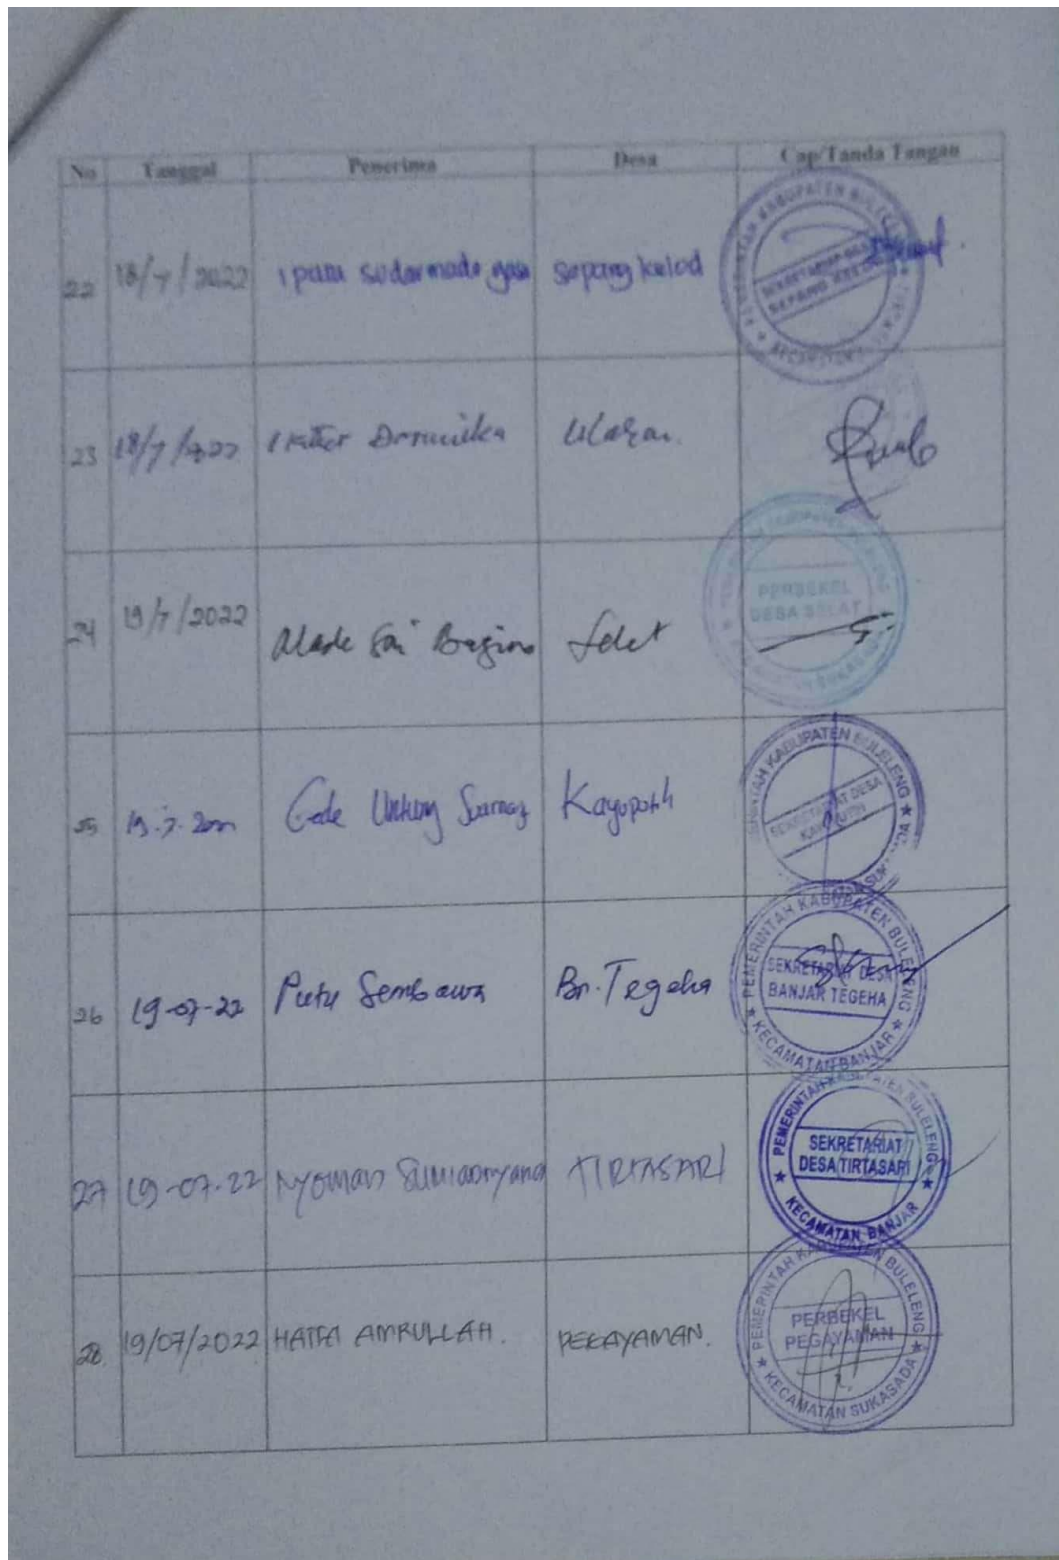 No Tanggal Penerima Desa Cap/Tanda Tangan
22 18/7/2022 I putu sudarmade yasa Sepang kelod
PEMERINTAH KABUPATEN BULELENG
SEKRETARIAT DESA
SEPANG KELOD
KECAMATAN
23 18/7/2022 I
24 19/7/2022 Made Sri Selat
PERBEKEL
DESA SELAT
25 19.7.2022 Gede Untung Kayuputih
PEMERINTAH KABUPATEN BULELENG
SEKRETARIAT DESA
KAYUPUTIH
26 19-07-22 Putu Sembawa Br. Tegeha
PEMERINTAH KABUPATEN BULELENG
SEKRETARIAT DESA
BANJAR TEGEHA
KECAMATAN BANJAR
27 19-07-22 Nyoman TIRTASARI
PEMERINTAH KABUPATEN BULELENG
SEKRETARIAT
DESA TIRTASARI
KECAMATAN BANJAR
28 19/07/2022 HATTA AMRULLAH. PEGAYAMAN.
PEMERINTAH KABUPATEN BULELENG
PERBEKEL
PEGAYAMAN
KECAMATAN SUKASADA